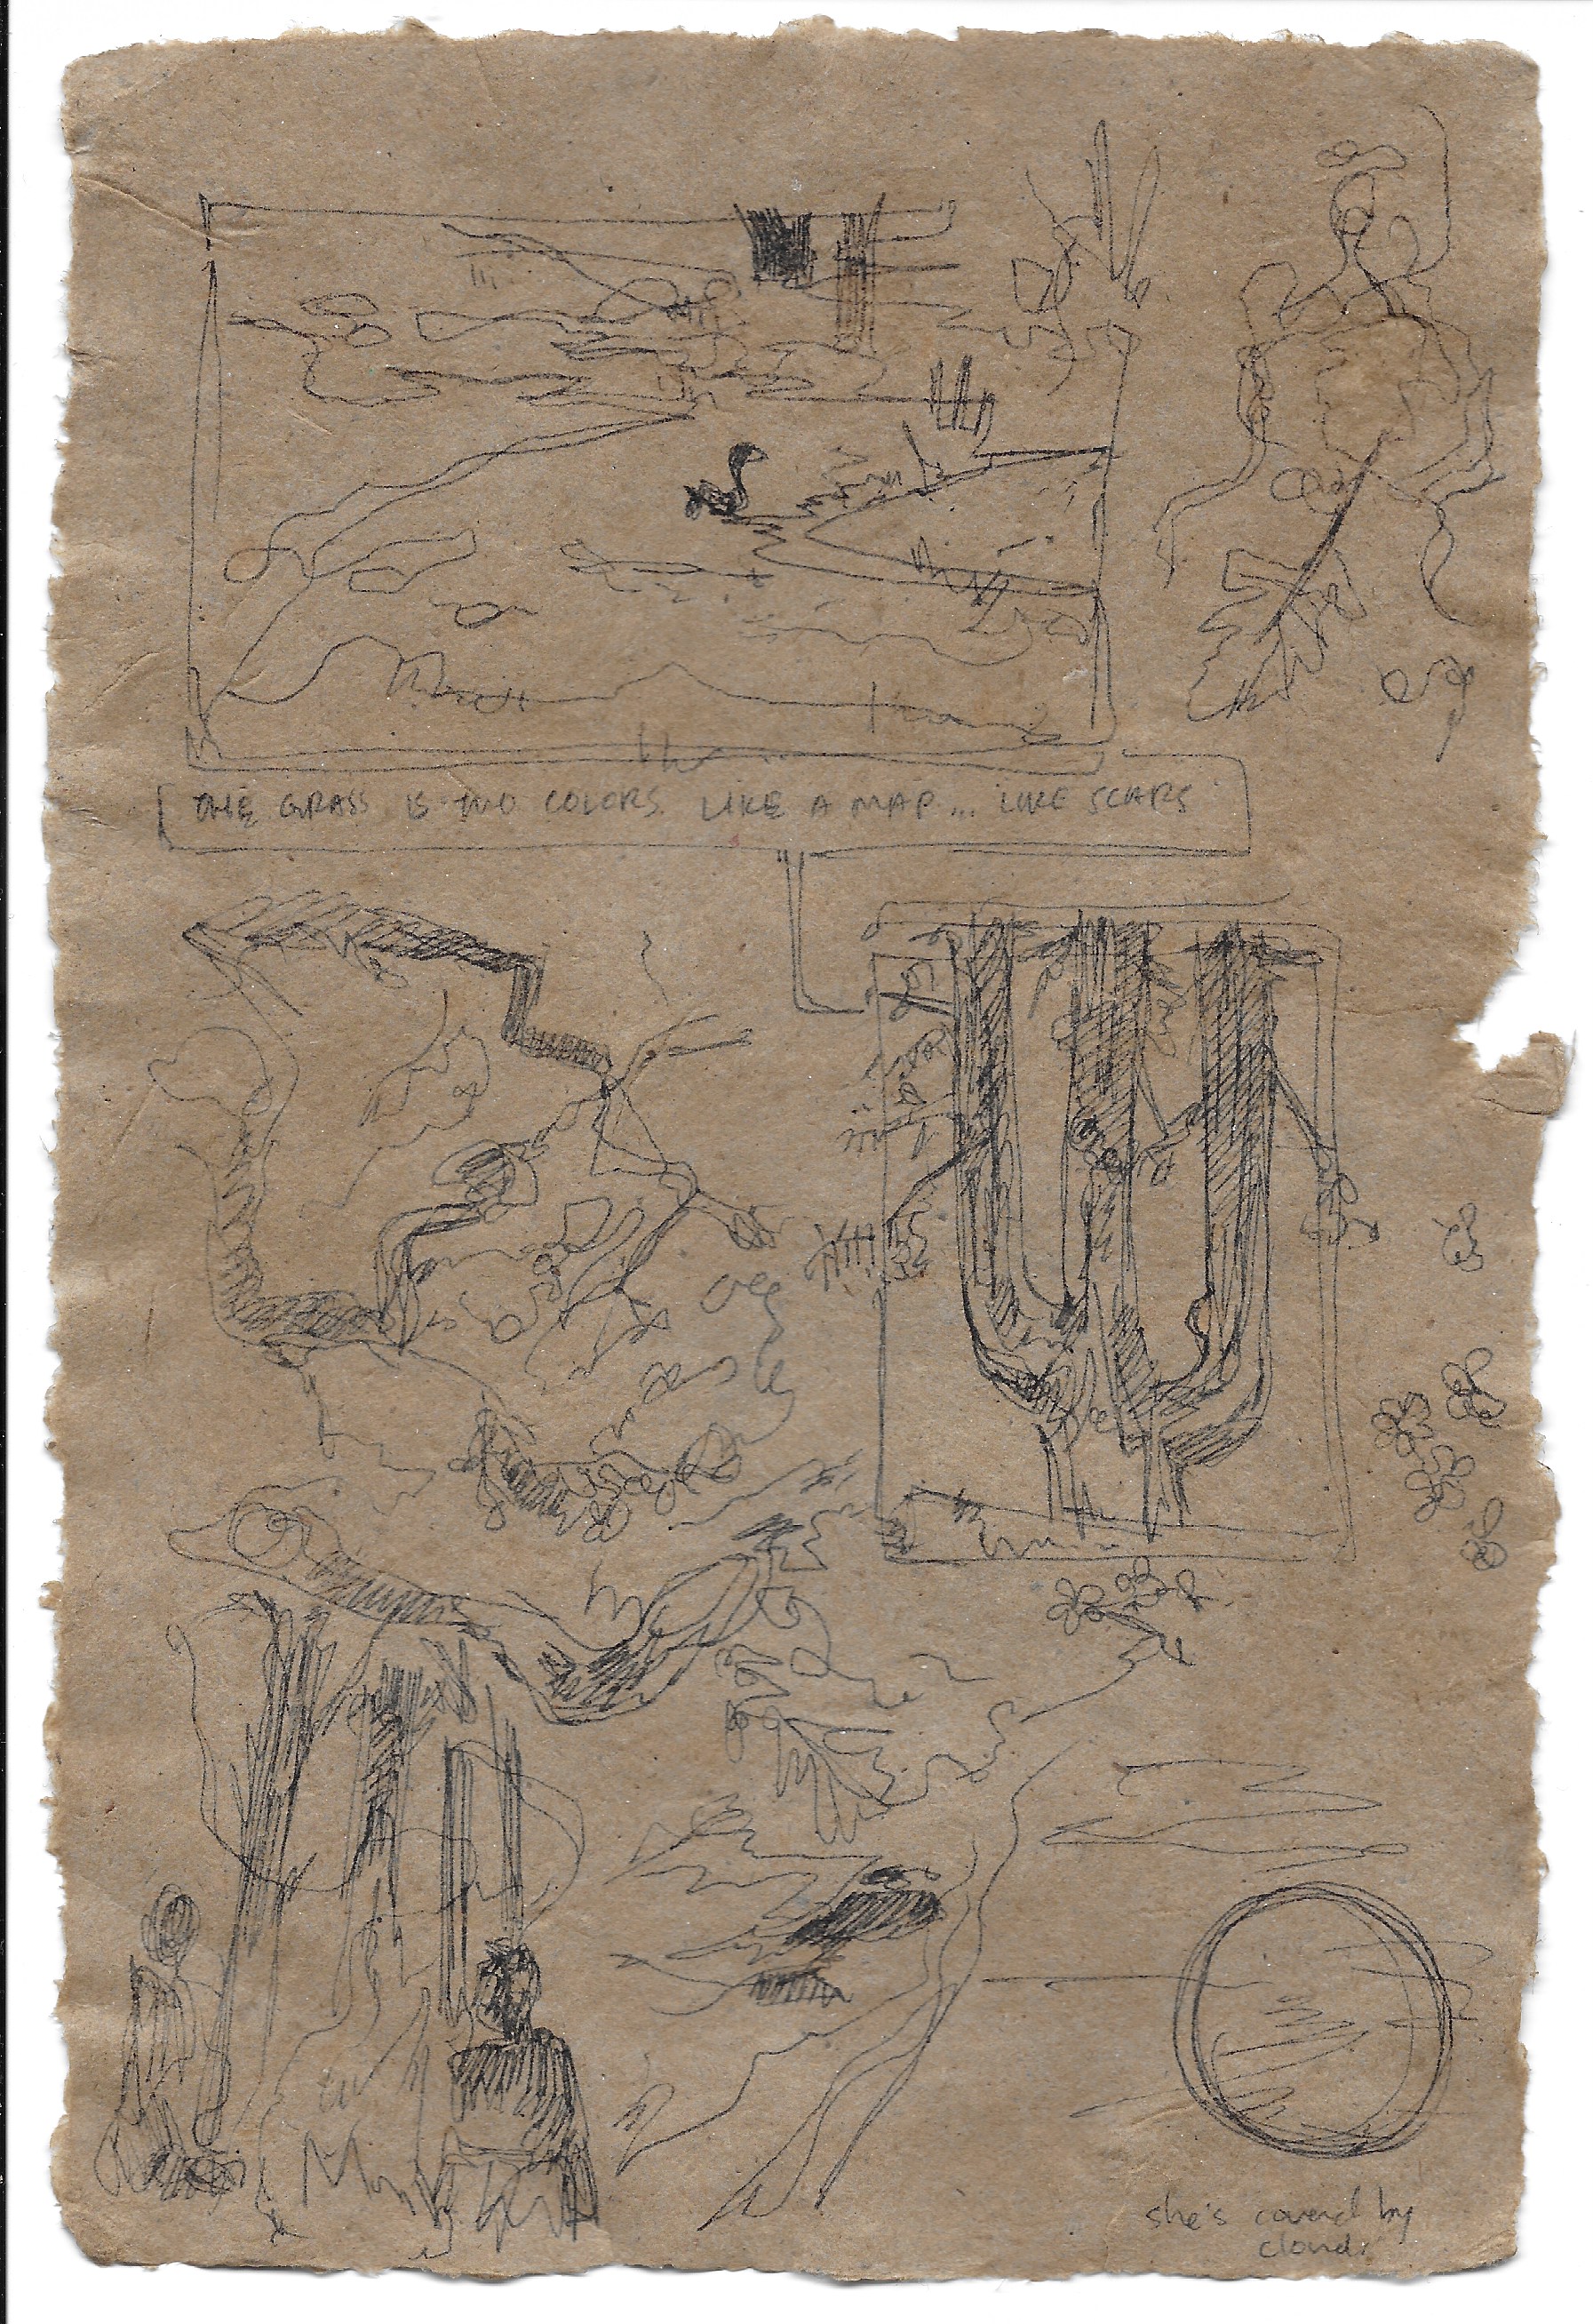 THE GRASS IS TWO COLORS. LIKE A MAP... LIKE SCARS
she's covered by
clouds